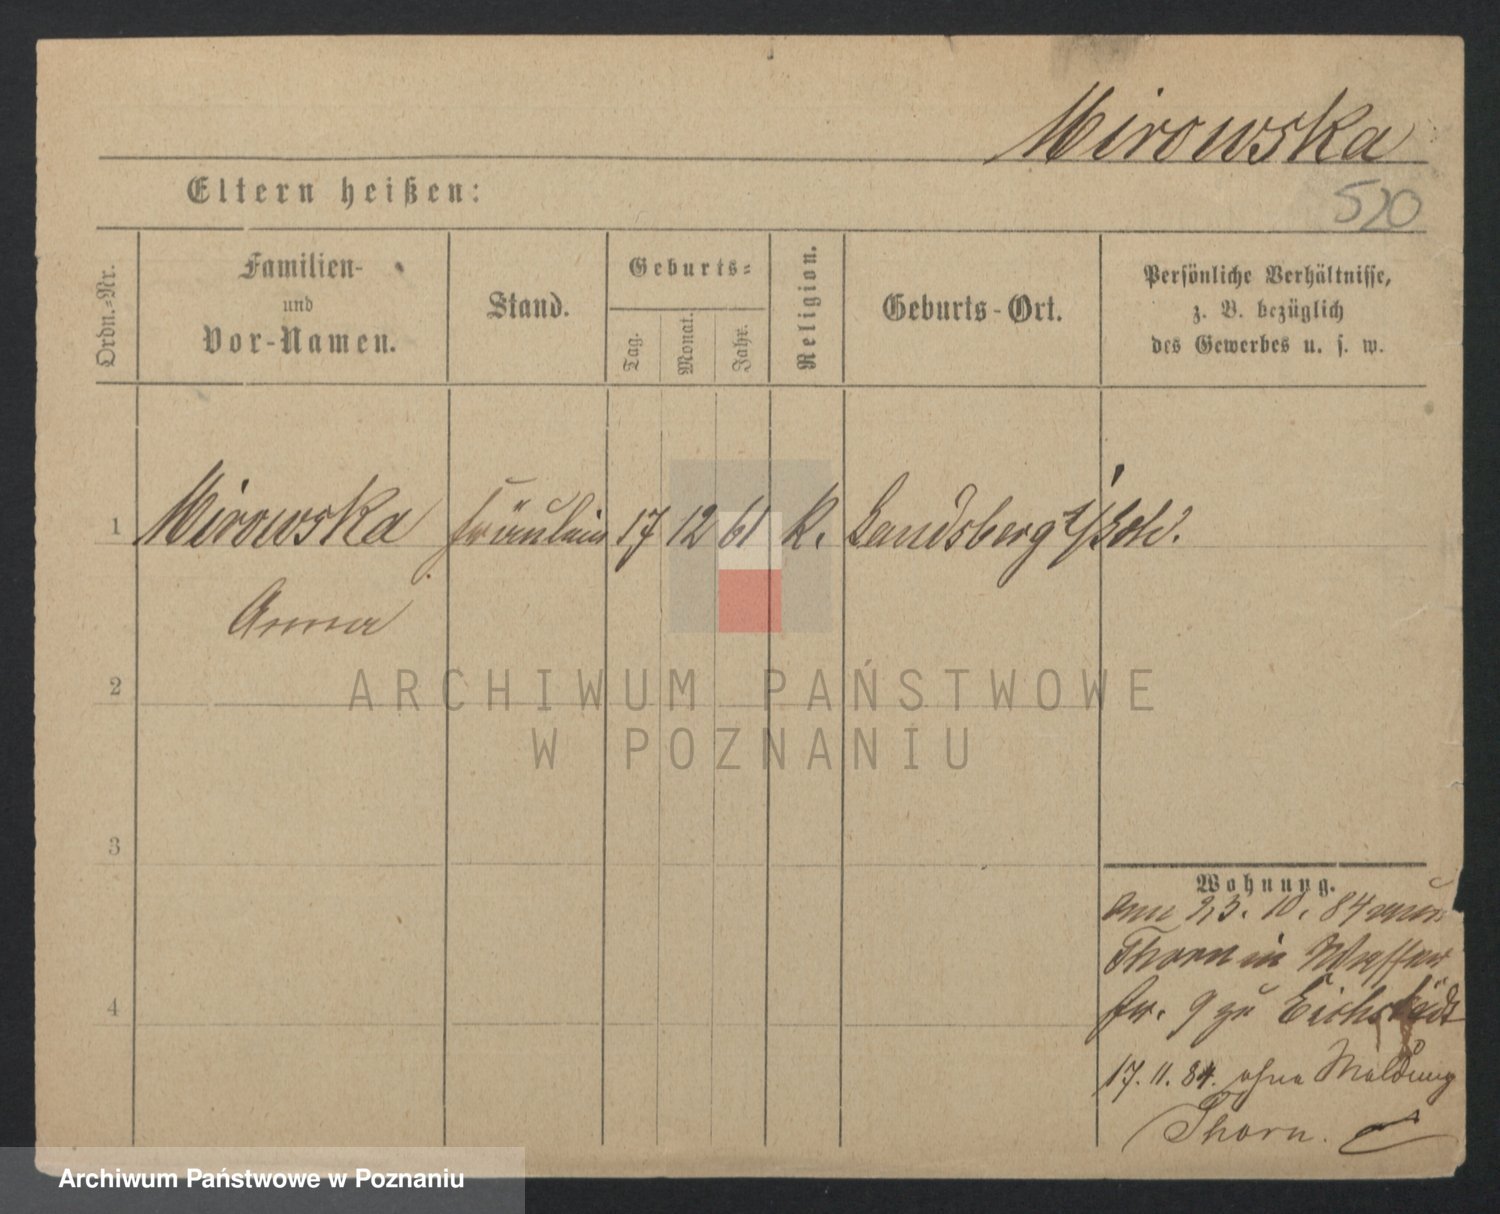 Mirowska
520
Eltern heißen:
Ordn.-Nr.
Familien-
und
Vor-Namen.
Stand.
Geburts-
Tag.
Monat.
Jahr.
Religion.
Geburts-Ort.
Persönliche Verhältnisse,
z. B. bezüglich
des Gewerbes u. s. w.
1 Mirowska Fräulein 17 12 61 K. Landsberg
Anna
2
ARCHIWUM PAŃSTWOWE
W POZNANIU
3
Wohnung.
am 23. 10. 84
Thorn in Wasser
str. 9 zu Eichstädt
4
17. 11. 84. ohne Meldung
Thorn.
Archiwum Państwowe w Poznaniu